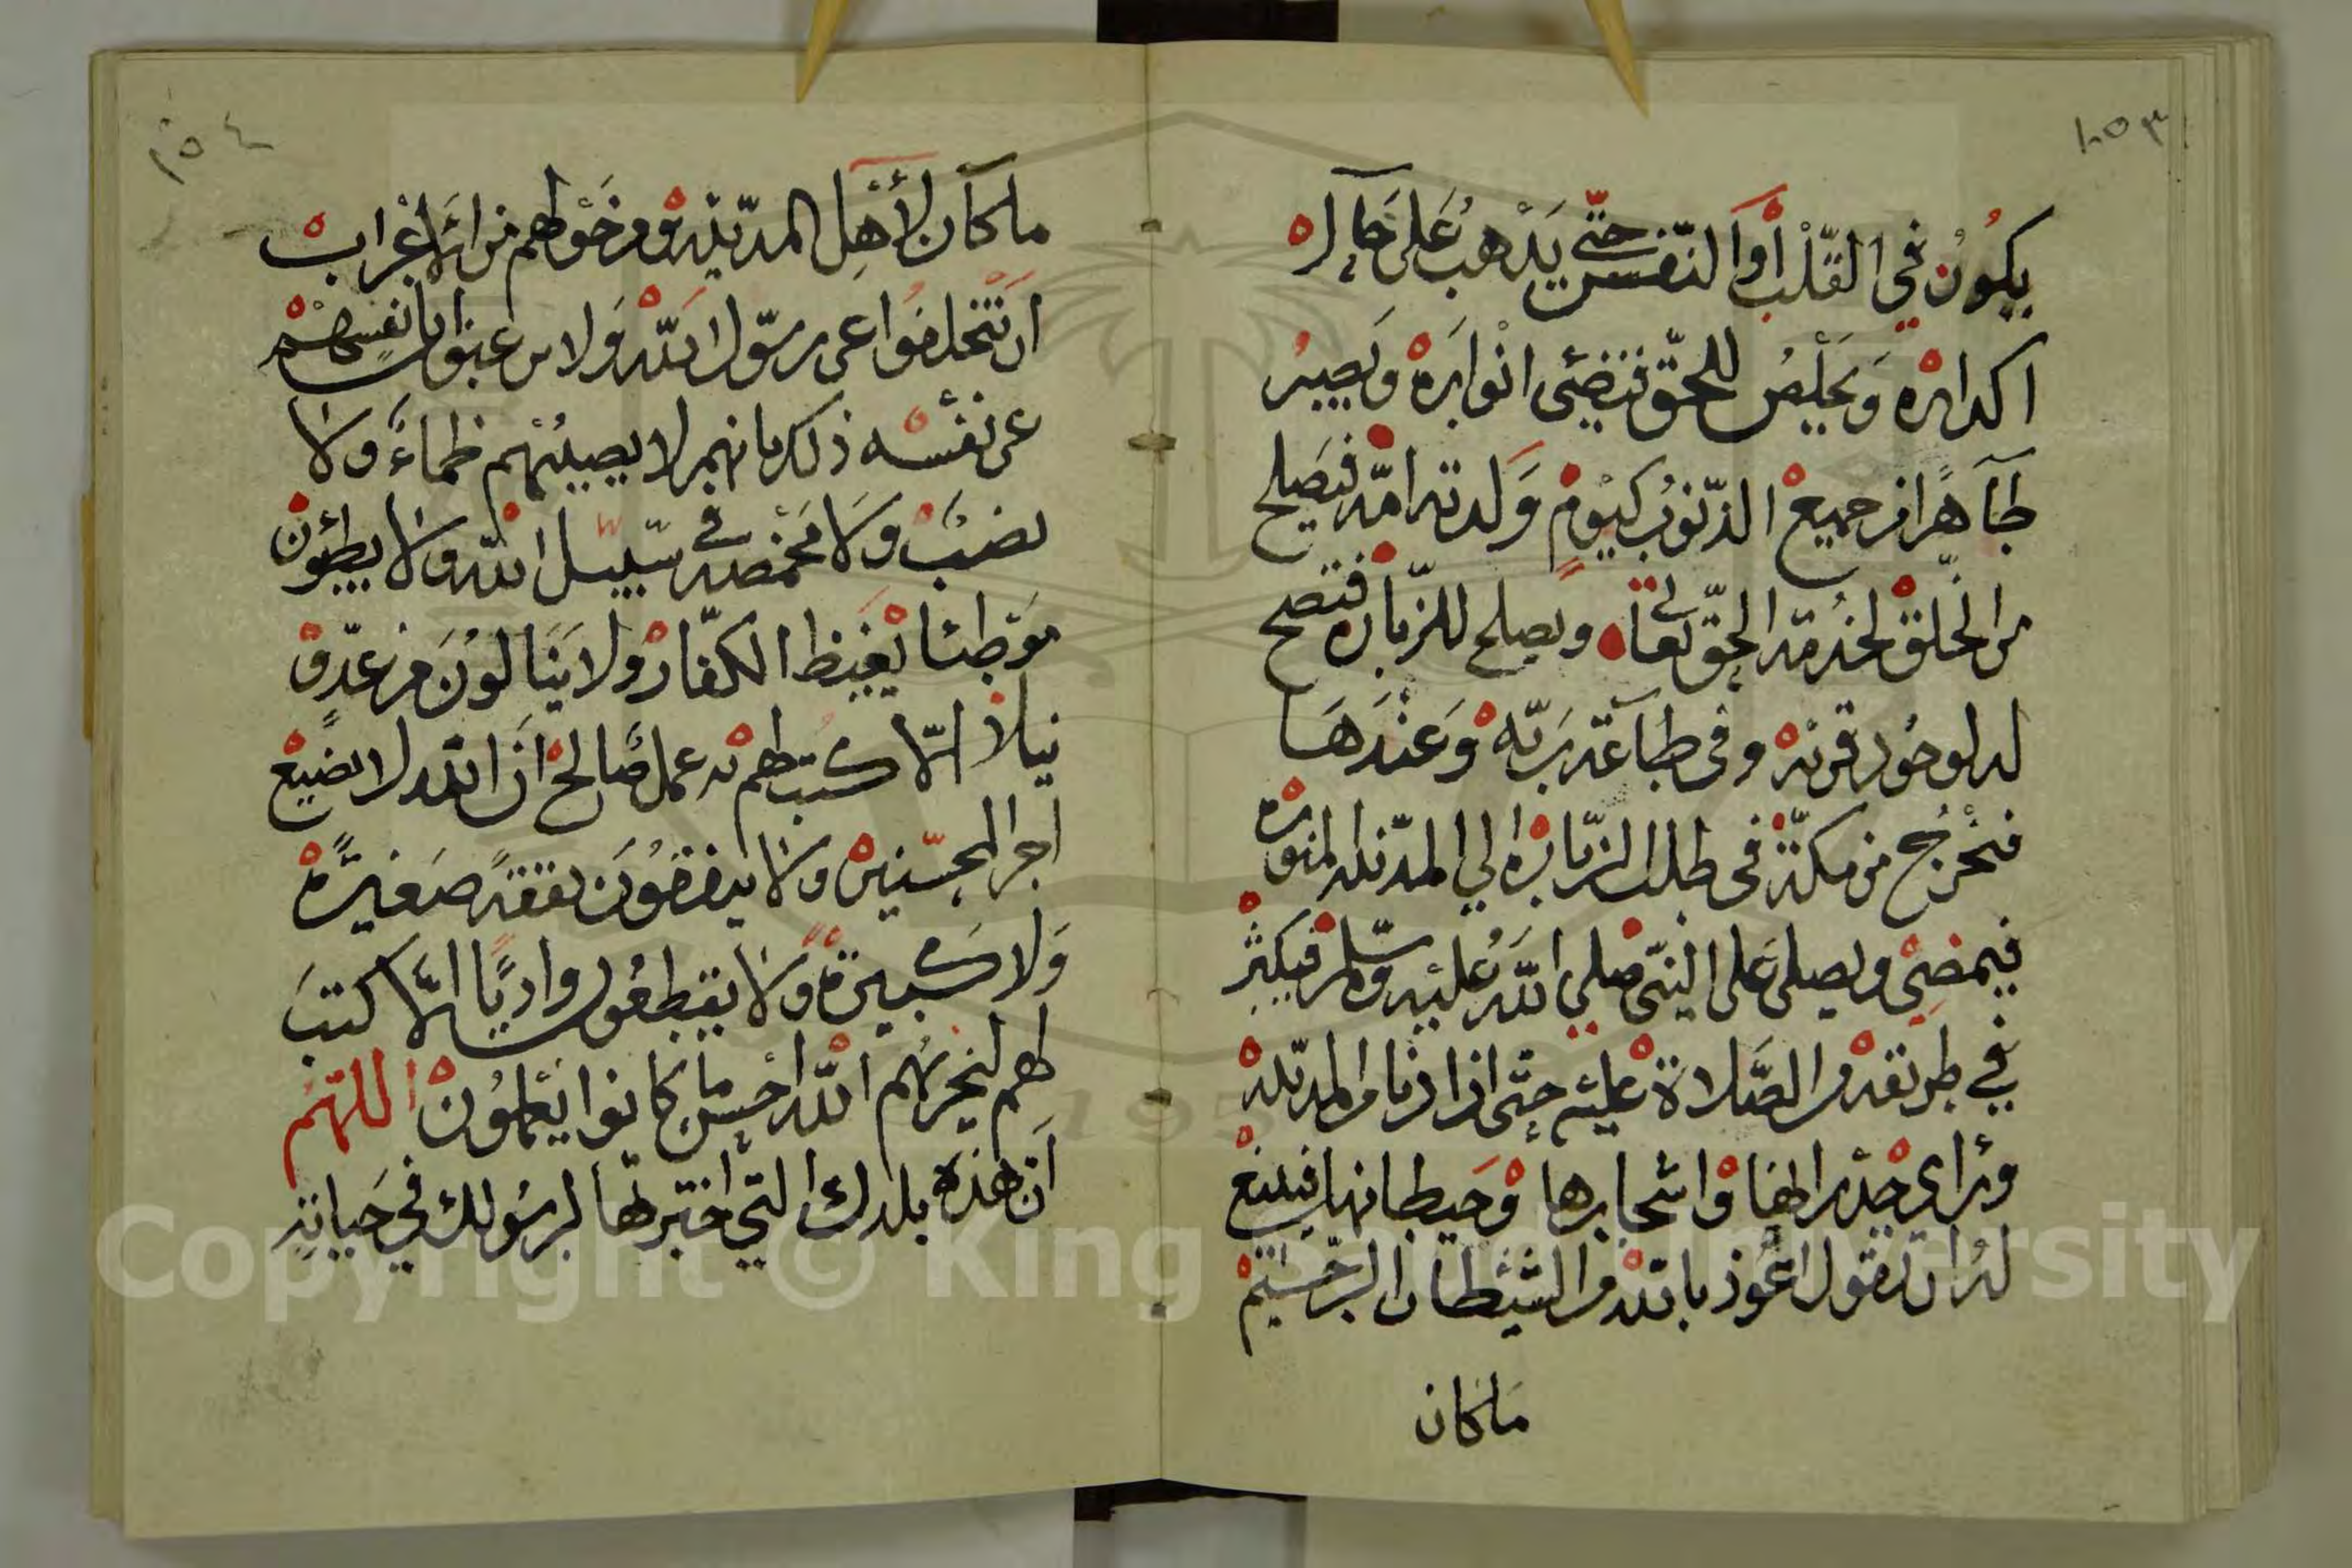 ١٠٥٣
يكُون في القلب أو النفس حتّى يذهب على حاله
اكداره ويخلص للحقّ فتضئى انواره ويصير
طاهرًا من جميع الذنوب كيوم ولدته امّه فيصلح
من الخلق لخدمة الحقّ تعالى ويصلح للزيارة فتصح
له لوجود قربه وفى طاعة ربّه وعندها
فخرج من مكّة فى طلب الزيارة الي المدينة المنورة
فيمضى ويصلى على النبي صلي الله عليه وسلم فيكثر
في طريقه من الصّلاة عليه حتّى اذا دنا من المدينة
وراي جدرانها واشجارها وحيطانها فينبغ
له ان يقول اعوذ بالله من الشيطان الرجيم
ماكان
١٠٥٤
ماكان لأهل المدينة ومن حولهم من الاعراب
ان يتخلفوا عن رسول الله ولا يرغبوا بانفسهم
عن نفسه ذلك بانهم لا يصيبهم ظماء ولا
نصب ولا مخمصة في سبيل الله ولا يطئون
موطئا يغيظ الكفار ولا ينالون من عدّو
نيلا الّا كتب لهم به عمل صالح ان الله لا يضيع
اجر المحسنين ولا ينفقون نفقة صغيرة
ولا كبيرة ولا يقطعون واديًا الّا كتب
لهم ليجزيهم الله احسن ما كانوا يعملون اللهّم
ان هذه بلدك التي اخترتها لرسولك في حياته
Copyright © King Saud University
195